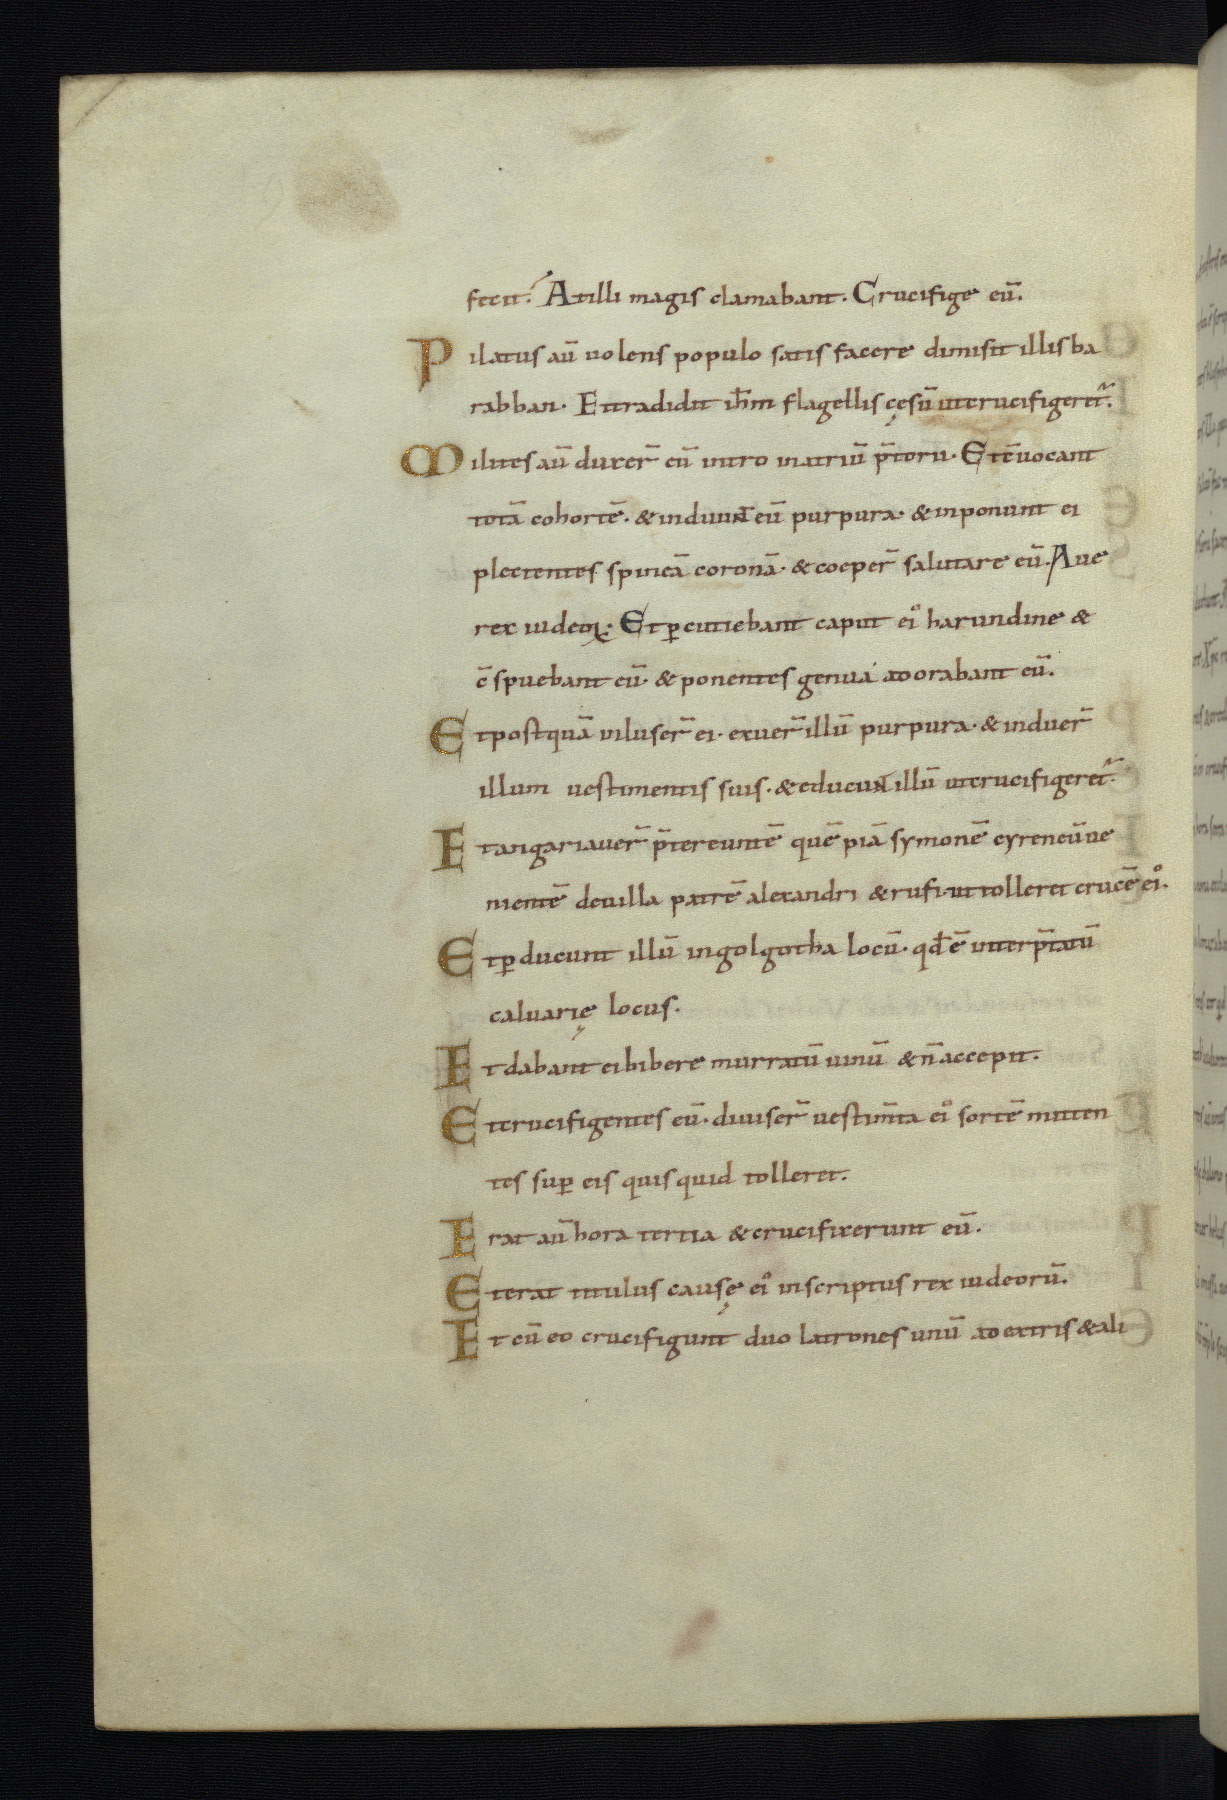 fecit? At illi magis clamabant. Crucifige eū.
Pilatus aū uolens populo satis facere dimisit illis ba
rabban. Et tradidit ih̄m flagellis cęsū ut crucifigeret᷑.
Milites aū duxer̄ eū intro in atriū p̄torii. Et c̄uocant
totā cohortē. & induunt eū purpura. & inponunt ei
plectentes spineā coronā. & coeper̄ salutare eū. Aue
rex iudeoꝝ. Et ꝑcutiebant caput ei᷒ harundine &
c̄spuebant eū. & ponentes genua adorabant eū.
Et postquā inluser̄ ei. exuer̄ illū purpura. & induer̄
illum uestimentis suis. & educunt illū ut crucifigeret᷑.
Et angariauer̄ p̄tereuntē quēpiā symonē cyreneū ue
nientē de uilla patrē alexandri & rufi. ut tolleret crucē ei᷒.
Et ꝑducunt illū in golgotha locū. qd̄ ē interp̄tatū
caluarię locus.
Et dabant ei bibere murratū uinū & n̄ accepit.
Et crucifigentes eū. diuiser̄ uestim̄ta ei᷒ sortē mitten
tes suꝑ eis quis quid tolleret.
Erat aū hora tertia & crucifixerunt eū.
Et erat titulus causę ei᷒ inscriptus rex iudeorū.
Et cū eo crucifigunt duo latrones unū a dextris & ali